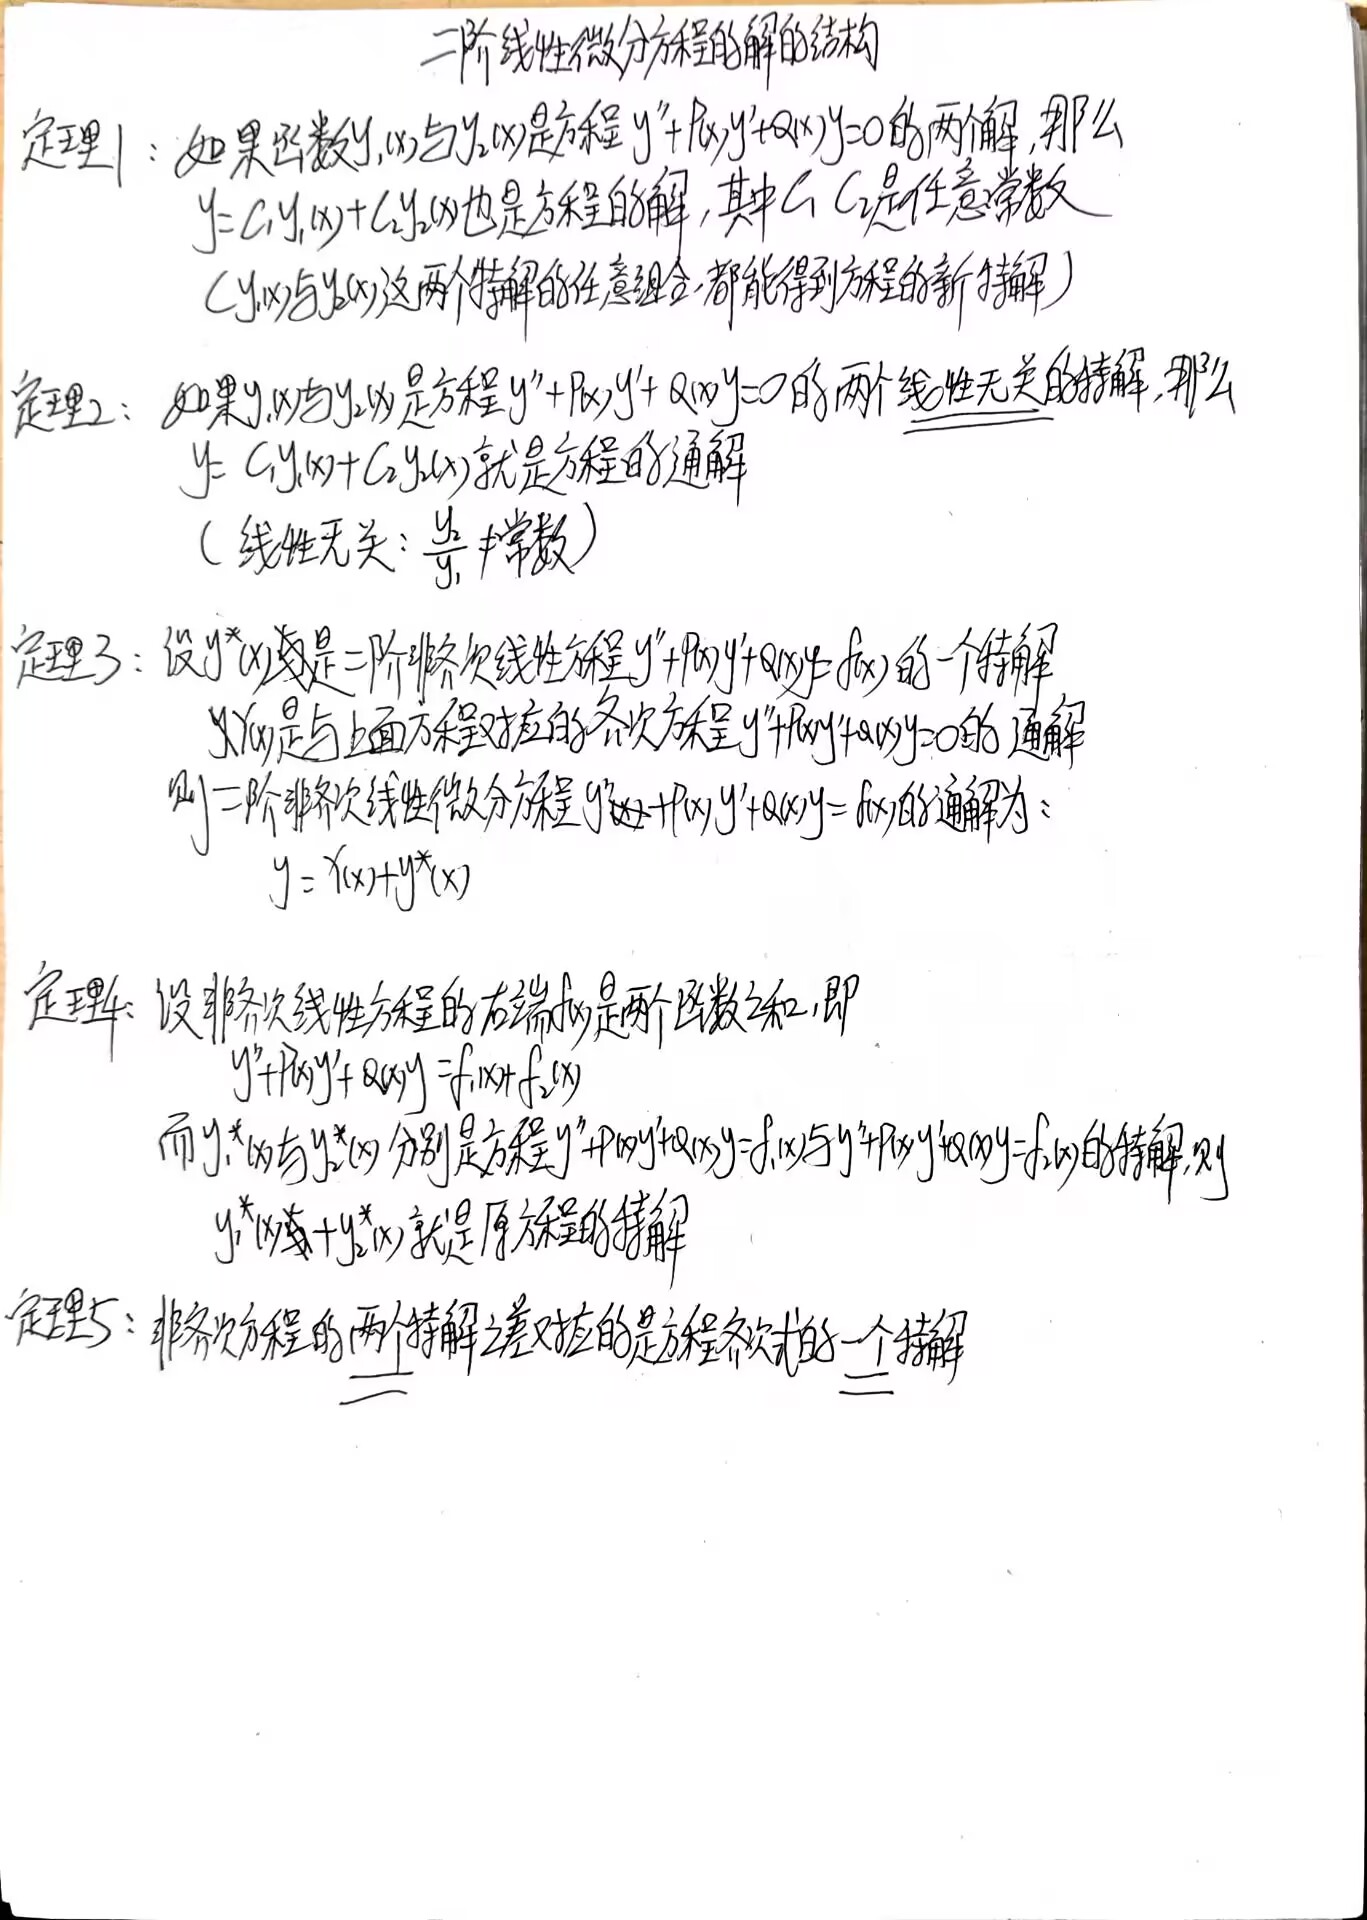 二阶线性微分方程的解的结构
定理1：如果函数y₁(x)与y₂(x)是方程 y″+P(x)y′+Q(x)y=0的两个解，那么
y=C₁y₁(x)+C₂y₂(x)也是方程的解，其中C₁ C₂是任意常数
（y₁(x)与y₂(x)这两个特解的任意组合，都能得到方程的新特解）
定理2：如果y₁(x)与y₂(x)是方程y″+P(x)y′+Q(x)y=0的两个线性无关的特解，那么
y=C₁y₁(x)+C₂y₂(x)就是方程的通解
（线性无关：y₂/y₁≠常数）
定理3：设y*(x)是二阶非齐次线性方程y″+P(x)y′+Q(x)y=f(x)的一个特解
Y(x)是与上面方程对应的齐次方程y″+P(x)y′+Q(x)y=0的通解
则二阶非齐次线性微分方程y″+P(x)y′+Q(x)y=f(x)的通解为：
y=Y(x)+y*(x)
定理4：设非齐次线性方程的右端f(x)是两个函数之和，即
y″+P(x)y′+Q(x)y=f₁(x)+f₂(x)
而y₁*(x)与y₂*(x)分别是方程y″+P(x)y′+Q(x)y=f₁(x)与y″+P(x)y′+Q(x)y=f₂(x)的特解，则
y₁*(x)+y₂*(x)就是原方程的特解
定理5：非齐次方程的两个特解之差对应的是方程齐次式的一个特解